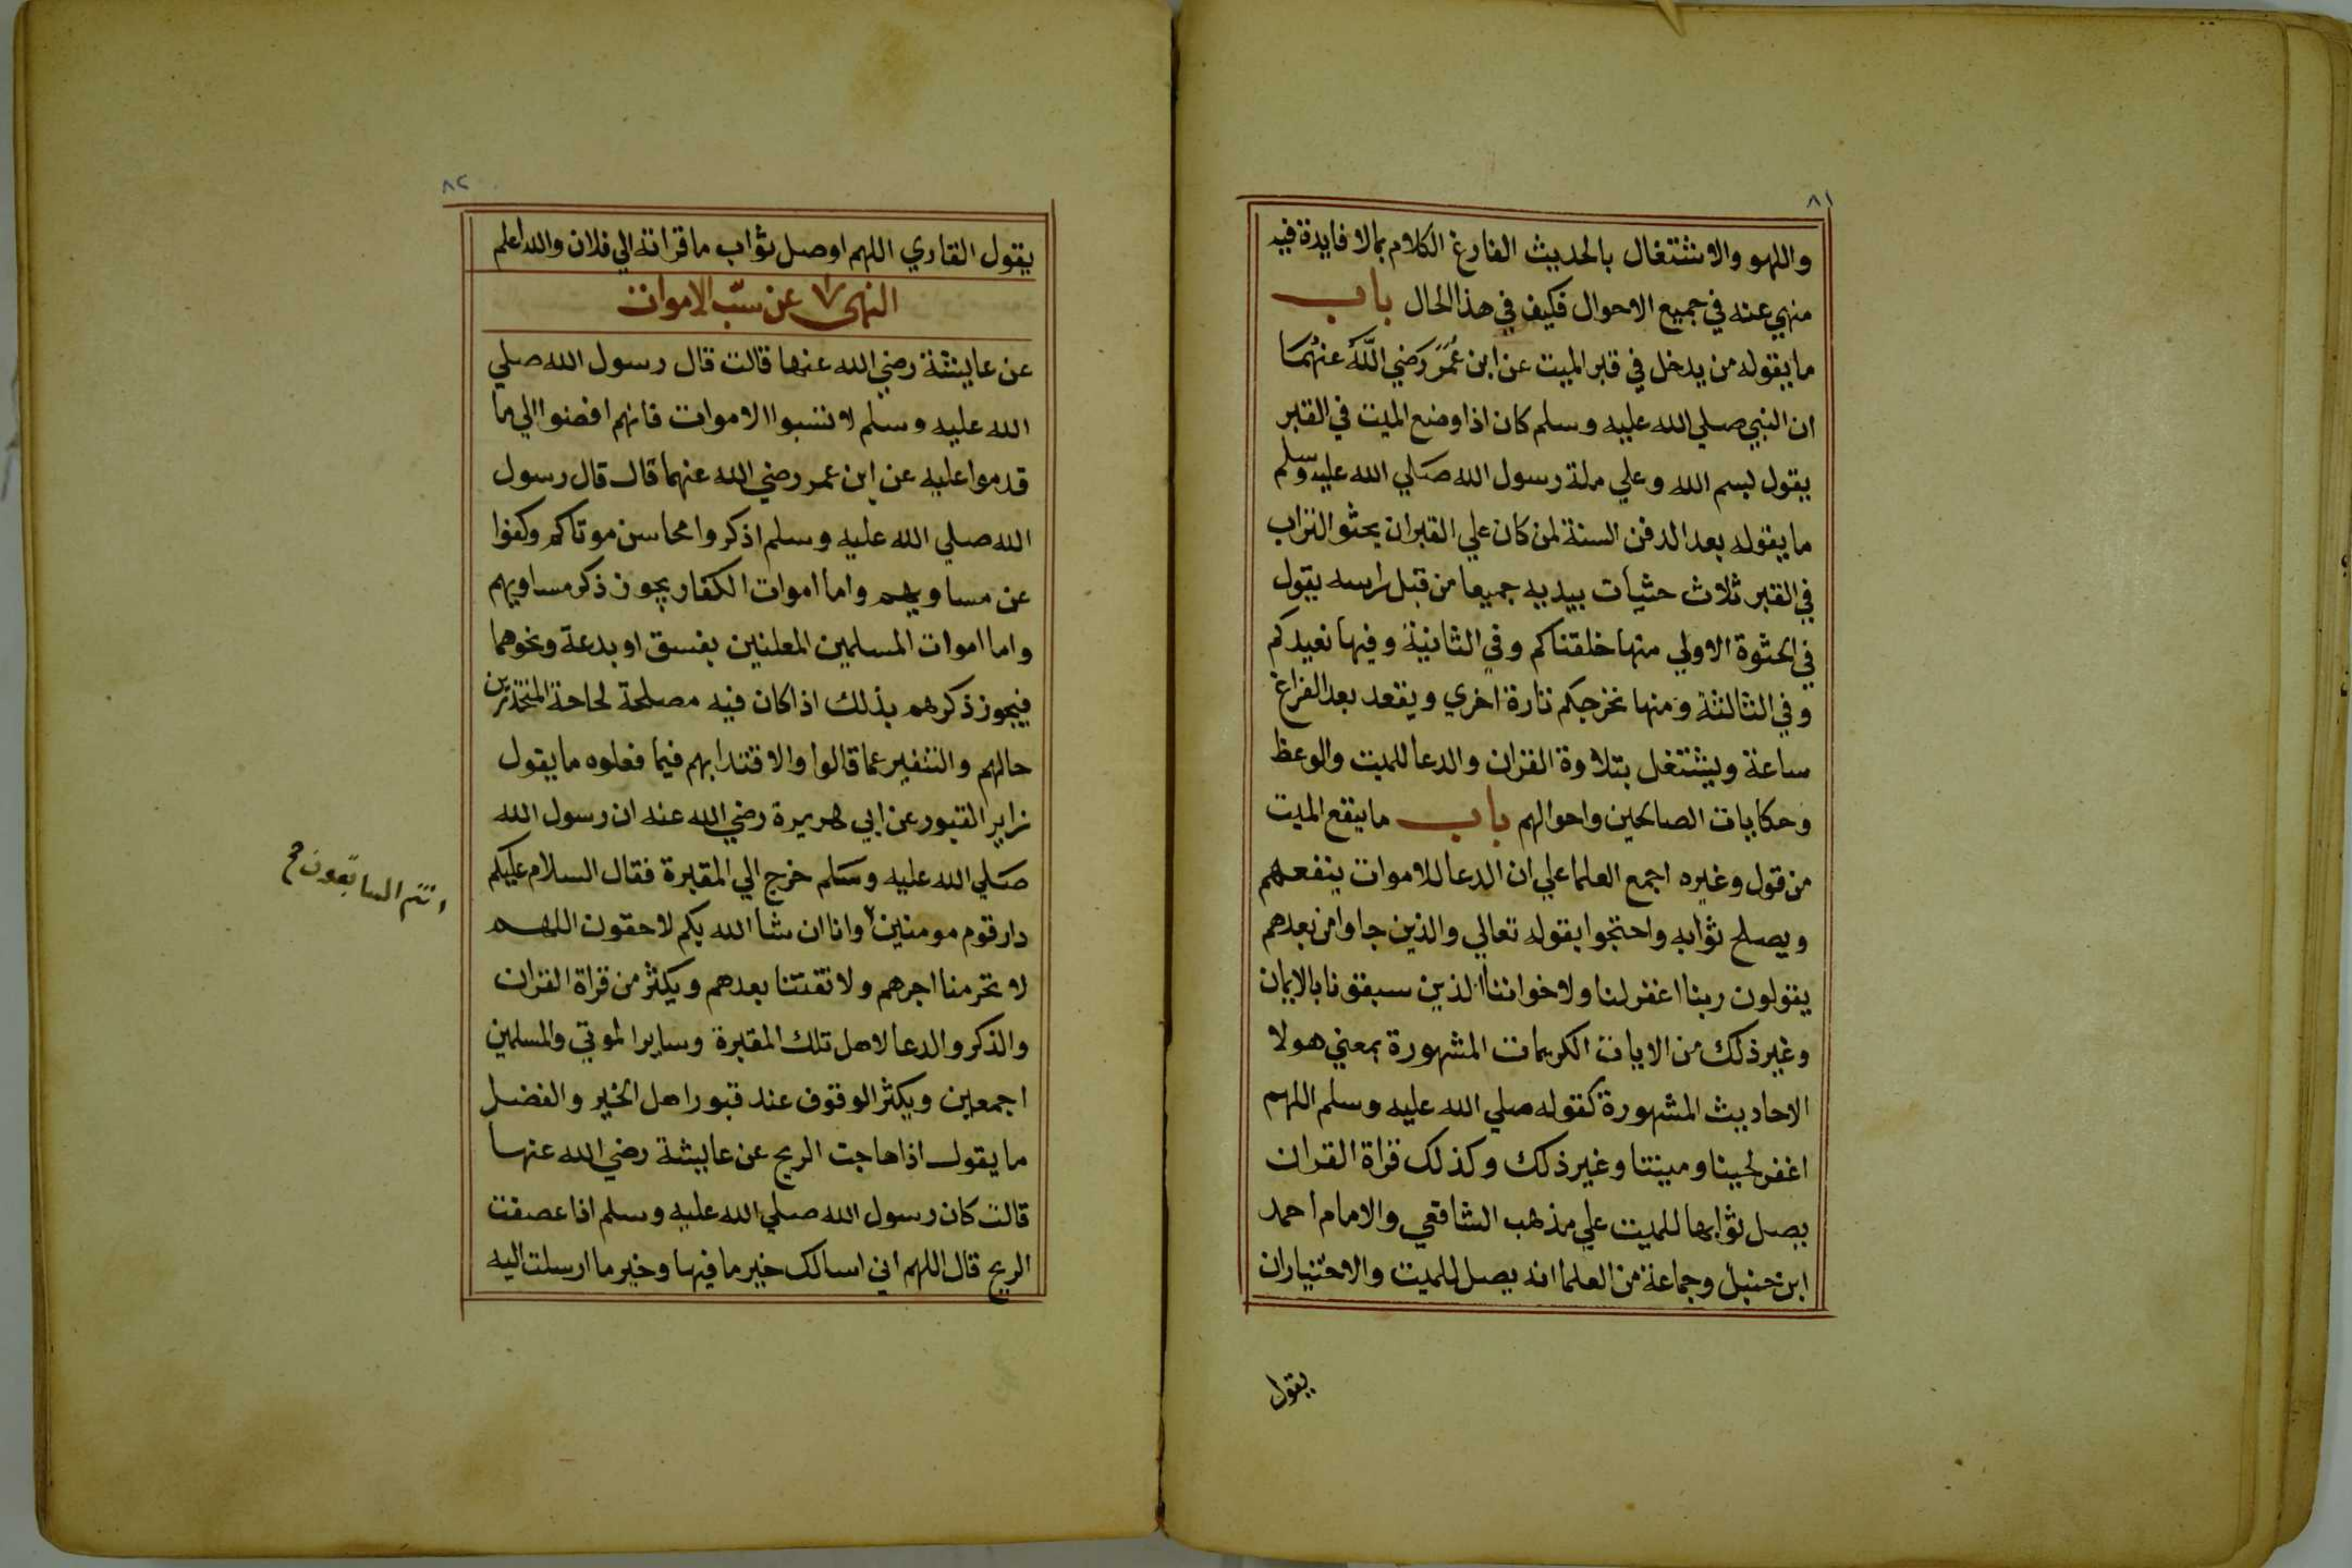 ٨١
واللهو والاشتغال بالحديث الفارغ الكلام بمالا فايدة فيه
منهي عنه في جميع الاحوال فكيف في هذا الحال باب
ما يقوله من يدخل في قبر الميت عن ابن عُمَرَ رَضي اللّه عنهُمَا
ان النبي صلي الله عليه وسلم كان اذا وضع الميت في القبر
يقول بسم الله وعلي ملة رسول الله صَلي الله عليه وسلم
ما يقوله بعد الدفن السنة لمن كان علي القبر ان يحثو التراب
في القبر ثلاث حثيات بيديه جميعا من قبل راسه يقول
في الحثوة الاولي منها خلقناكم وفي الثانية وفيها نعيدكم
وفي الثالثة ومنها نخرجكم تارة اخري ويقعد بعد الفراغ
ساعة ويشتغل بتلاوة القران والدعا للميت والوعظ
وحكايات الصالحين واحوالهم باب ما ينفع الميت
من قول وغيره اجمع العلما علي ان الدعا للاموات ينفعهم
ويصلح ثوابه واحتجوا بقوله تعالي والذين جاوا من بعدهم
يقولون ربنا اغفر لنا ولاخواننا الذين سبقونا بالايمان
وغير ذلك من الايات الكريمات المشهورة بمعني هولا
الاحاديث المشهورة كقوله صلي الله عليه وسلم اللهم
اغفر لحينا وميتنا وغير ذلك وكذلك قراة القران
يصل ثوابها للميت علي مذهب الشافعي والامام احمد
ابن حنبل وجماعة من العلما انه يصل للميت والاختيار ان
يقول
٨٢
يقول القاري اللهم اوصل ثواب ما قراته الي فلان والله اعلم
النهى عن سبّ الاموات
عن عايشة رضي الله عنها قالت قال رسول الله صلي
الله عليه وسلم لا تسبوا الاموات فانهم افضوا الي ما
قدموا عليه عن ابن عمر رضي الله عنهما قال قال رسول
الله صلي الله عليه وسلم اذكروا محاسن موتاكم وكفوا
عن مساويهم واما اموات الكفار يجوز ذكر مساويهم
واما اموات المسلمين المعلنين بفسق او بدعة ونحوهما
فيجوز ذكرهم بذلك اذا كان فيه مصلحة لحاجة
حالهم والتنفير عما قالوا والاقتدا بهم فيما فعلوه ما يقول
زاير القبور عن ابي هريرة رضي الله عنه ان رسول الله
صَلي الله عليه وسَلم خرج الي المقبرة فقال السلام عليكم
دار قوم مومنين وانا ان شا الله بكم لاحقون اللهم
انتم السابقون صح
لا تحرمنا اجرهم ولا تفتنا بعدهم ويكثر من قراة القران
والذكر والدعا لاهل تلك المقبرة وساير الموتي والمسلمين
اجمعين ويكثر الوقوف عند قبور اهل الخير والفضل
ما يقول اذا هاجت الريح عن عايشة رضي الله عنها
قالت كان رسول الله صلي الله عليه وسلم اذا عصفت
الريح قال اللهم اني اسالك خير ما فيها وخير ما ارسلت اليه